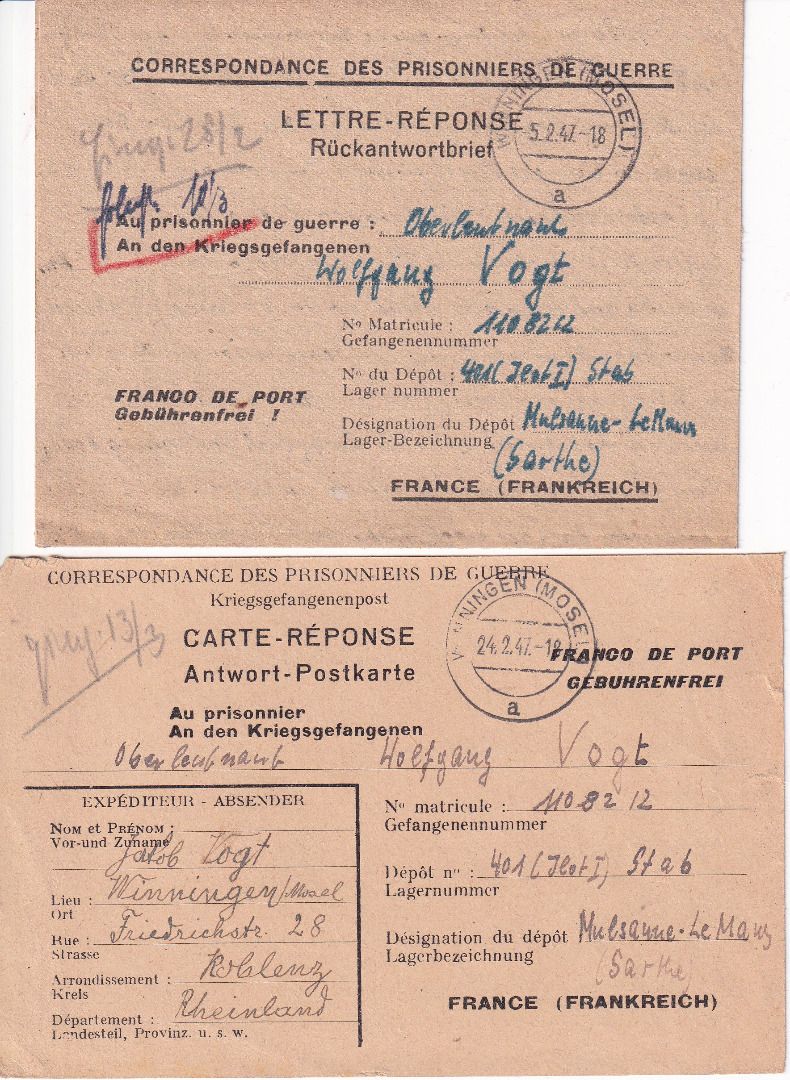 CORRESPONDANCE DES PRISONNIERS DE GUERRE
LETTRE-RÉPONSE
Rückantwortbrief
WINNINGEN (MOSEL)
5.2.47.-18
a
28/2
10/3
Au prisonnier de guerre : Oberleutnant
An den Kriegsgefangenen
Wolfgang Vogt
No Matricule : 1108212
Gefangenennummer
No du Dépôt : 401 (Ilot I) Stab
Lager nummer
FRANCO DE PORT
Gebührenfrei !
Désignation du Dépôt Mulsanne-Le Mans
Lager-Bezeichnung
(Sarthe)
FRANCE (FRANKREICH)
CORRESPONDANCE DES PRISONNIERS DE GUERRE
Kriegsgefangenenpost
WINNINGEN (MOSEL)
24.2.47.-18
a
13/3
CARTE-RÉPONSE
Antwort-Postkarte
FRANCO DE PORT
GEBUHRENFREI
Au prisonnier
An den Kriegsgefangenen
Oberleutnant Wolfgang Vogt
EXPÉDITEUR - ABSENDER
NOM et PRÉNOM :
Vor-und Zuname
Jakob Vogt
Lieu : Winningen/Mosel
Ort
Rue : Friedrichstr. 28
Strasse
Arrondissement : Koblenz
Kreis
Département : Rheinland
Landesteil, Provinz. u. s. w.
No matricule : 1108212
Gefangenennummer
Dépôt no : 401 (Ilot I) Stab
Lagernummer
Désignation du dépôt Mulsanne-Le Mans
Lagerbezeichnung
(Sarthe)
FRANCE (FRANKREICH)